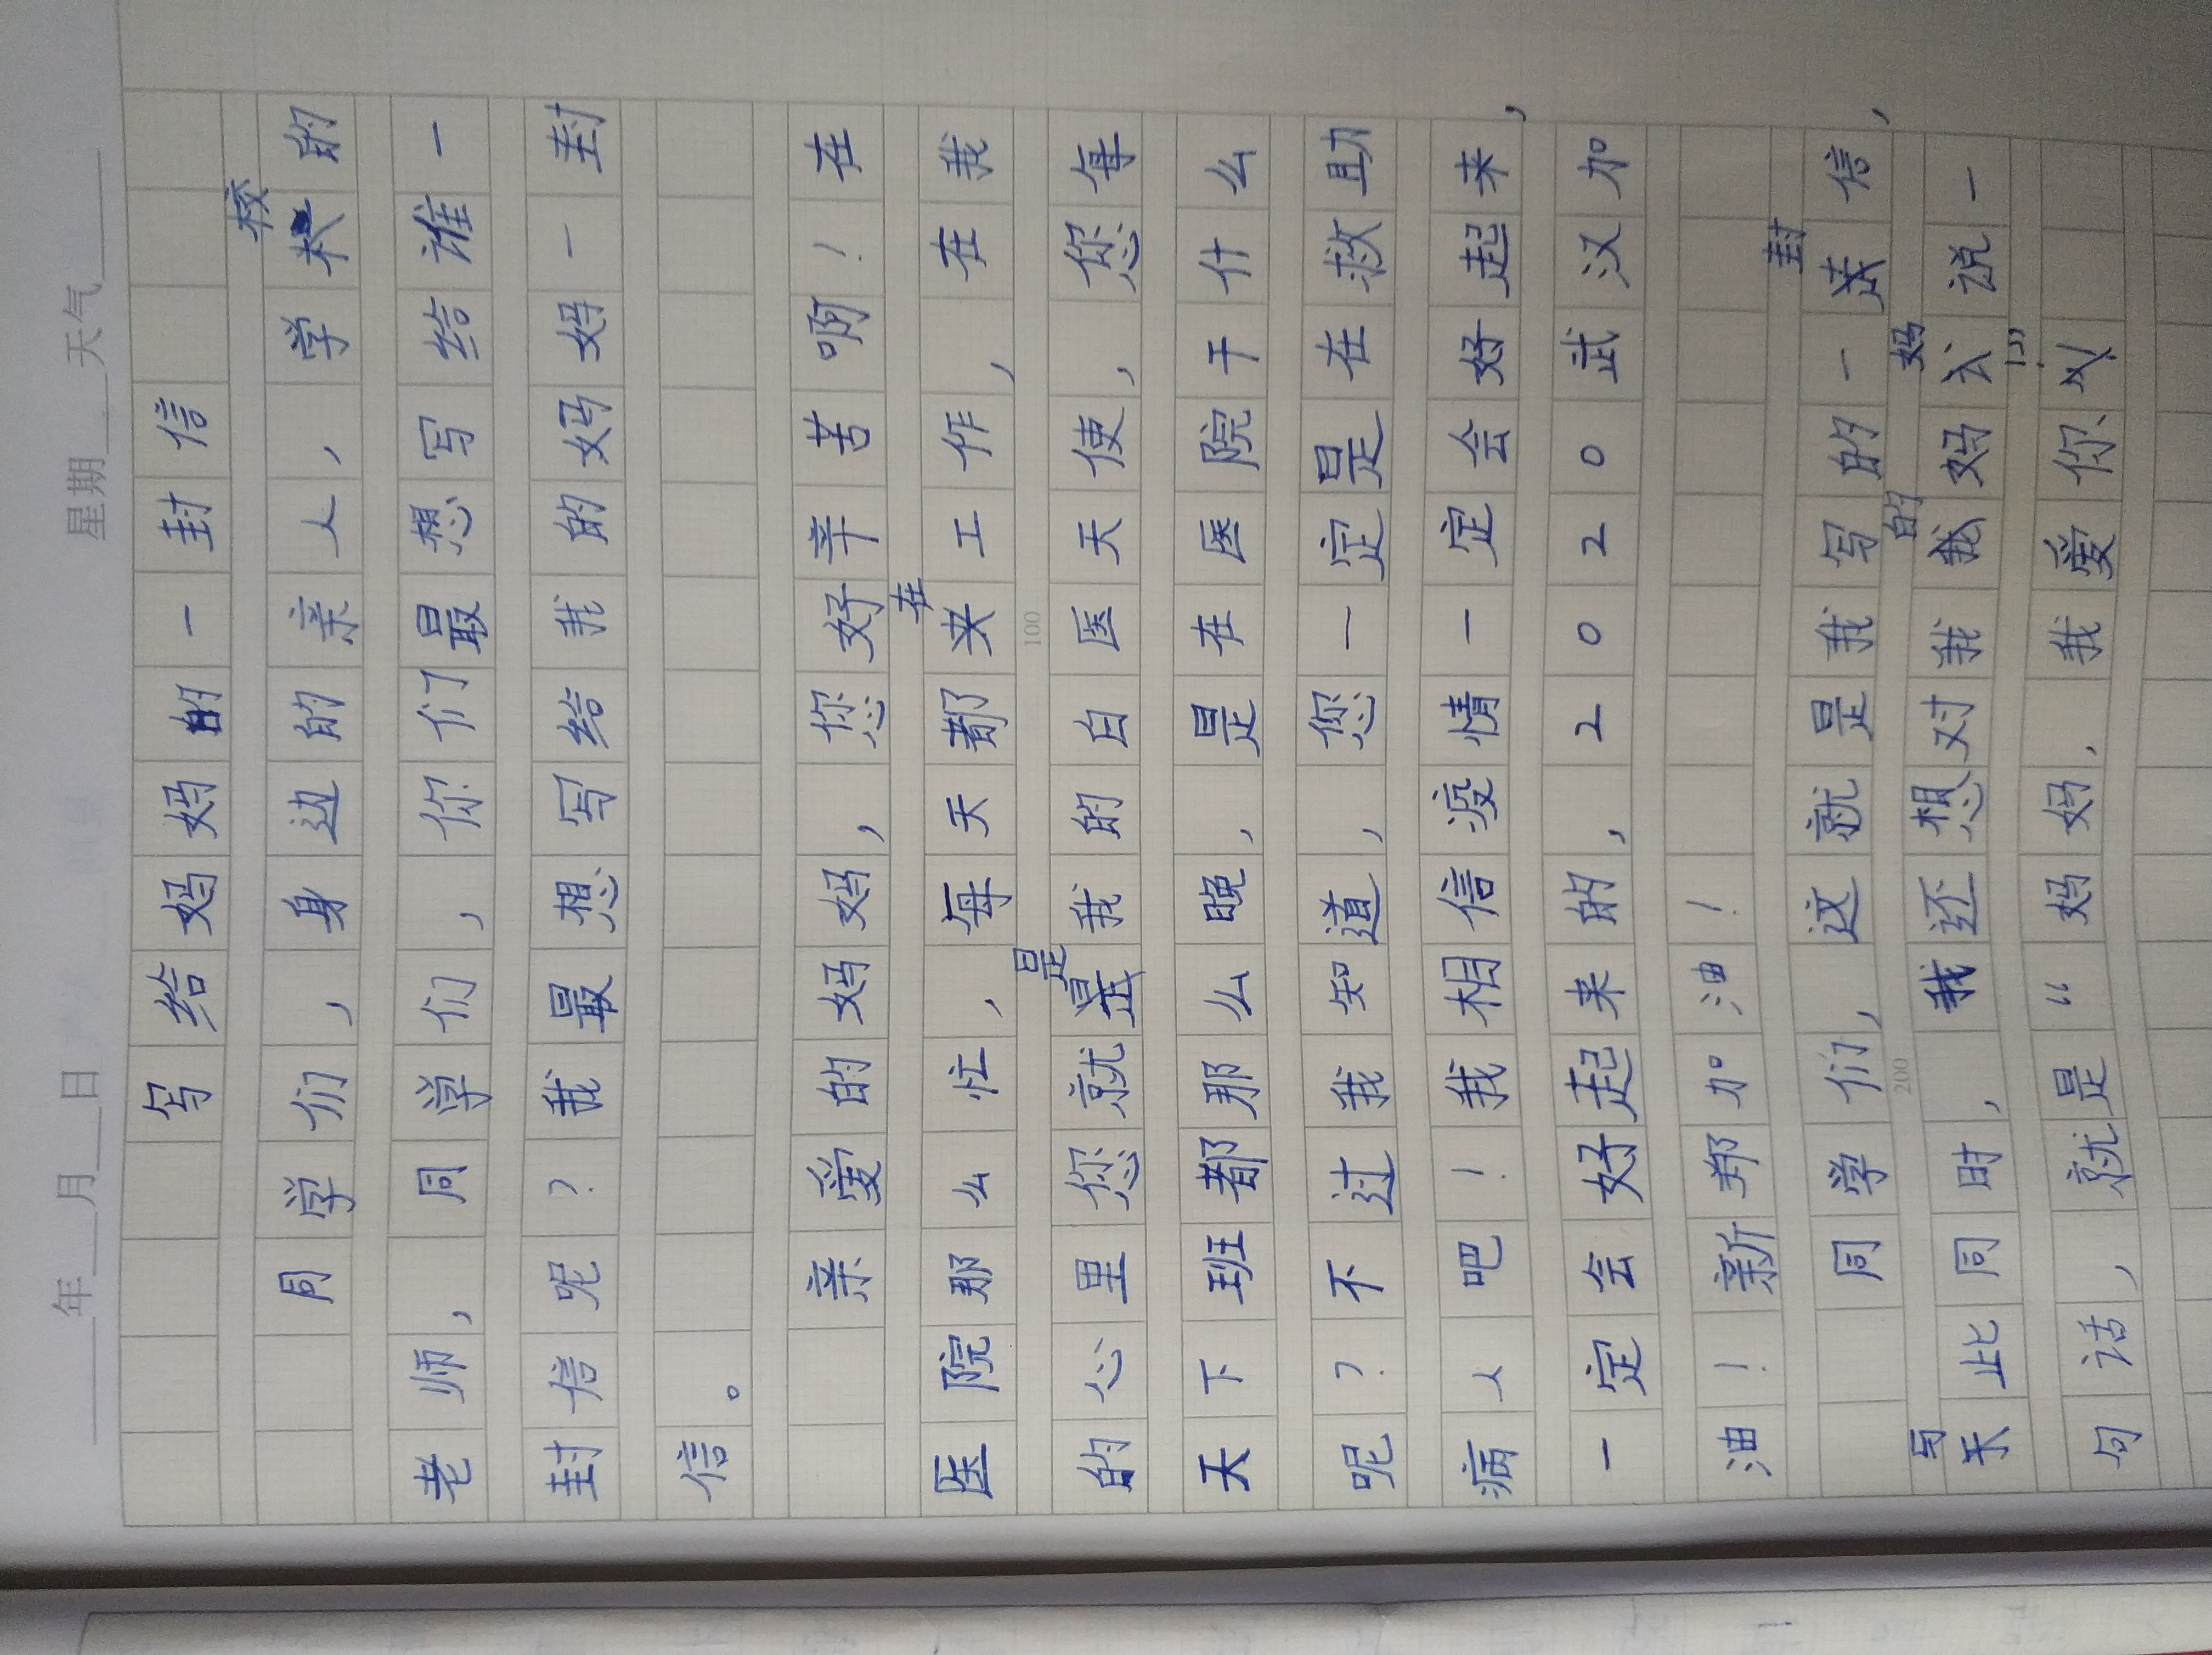 年 月 日 星期 天气
写给妈妈的一封信
同学们,身边的亲人,学校的
老师,同学们,你们最想写给谁一
封信呢?我最想写给我的妈妈一封
信。
亲爱的妈妈,您好辛苦啊!在
医院那么忙,每天都在工作,在我
的心里您就是我的白医天使,您每
天下班都那么晚,是在医院干什么
呢?不过我知道,您一定是在救助
病人吧!我相信疫情一定会好起来,
一定会好起来的,2020武汉加
油!新郑加油!
同学们,这就是我写的一封信,
与此同时,我还想对我的妈妈说一
句话,就是“妈妈,我爱你!”
100
200